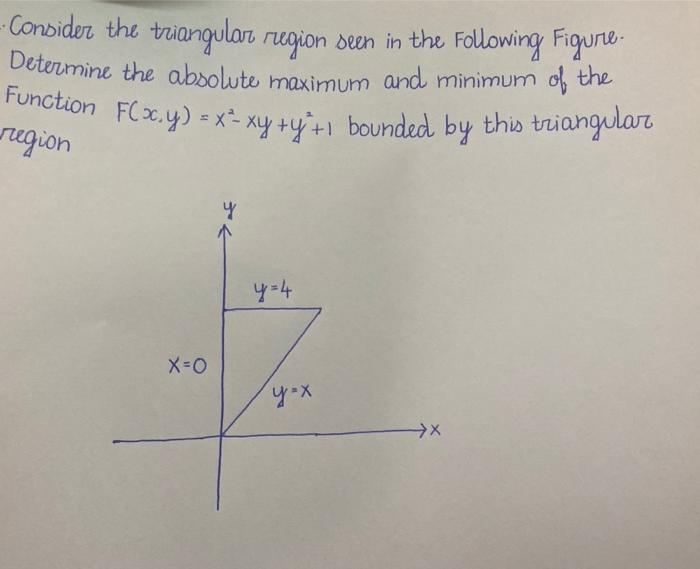 Consider the triangular region seen in the Following Figure.
Determine the absolute maximum and minimum of the
Function F(x,y) = x²-xy+y²+1 bounded by this triangular
region
y
y=4
x=0
y=x
x